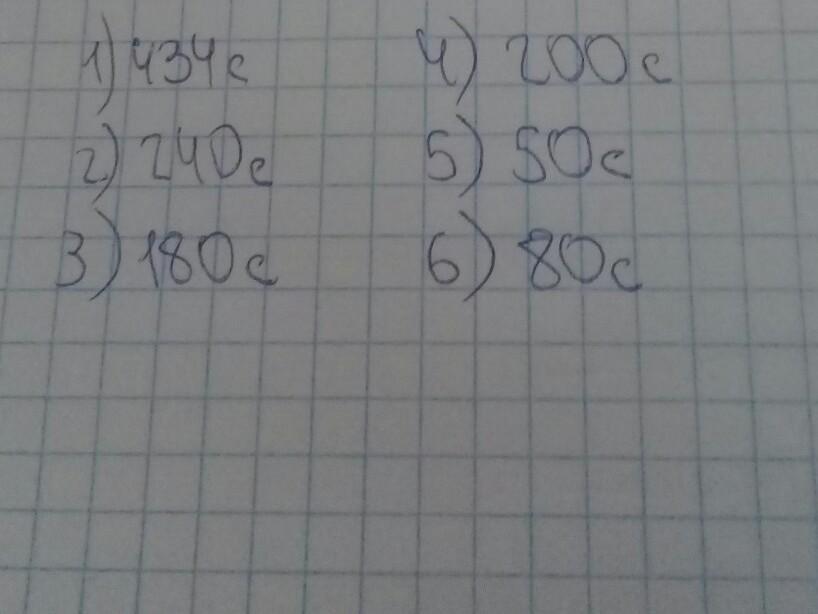 1) 434с
2) 240с
3) 180с
4) 200с
5) 50с
6) 80с